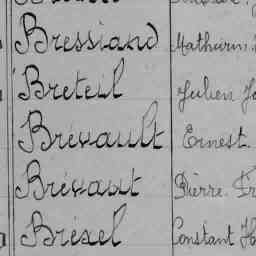 Bressiand Mathurin
Breteil Julien
Brévault Ernest.
Brévaut Pierre. Fr
Brézel Constant H